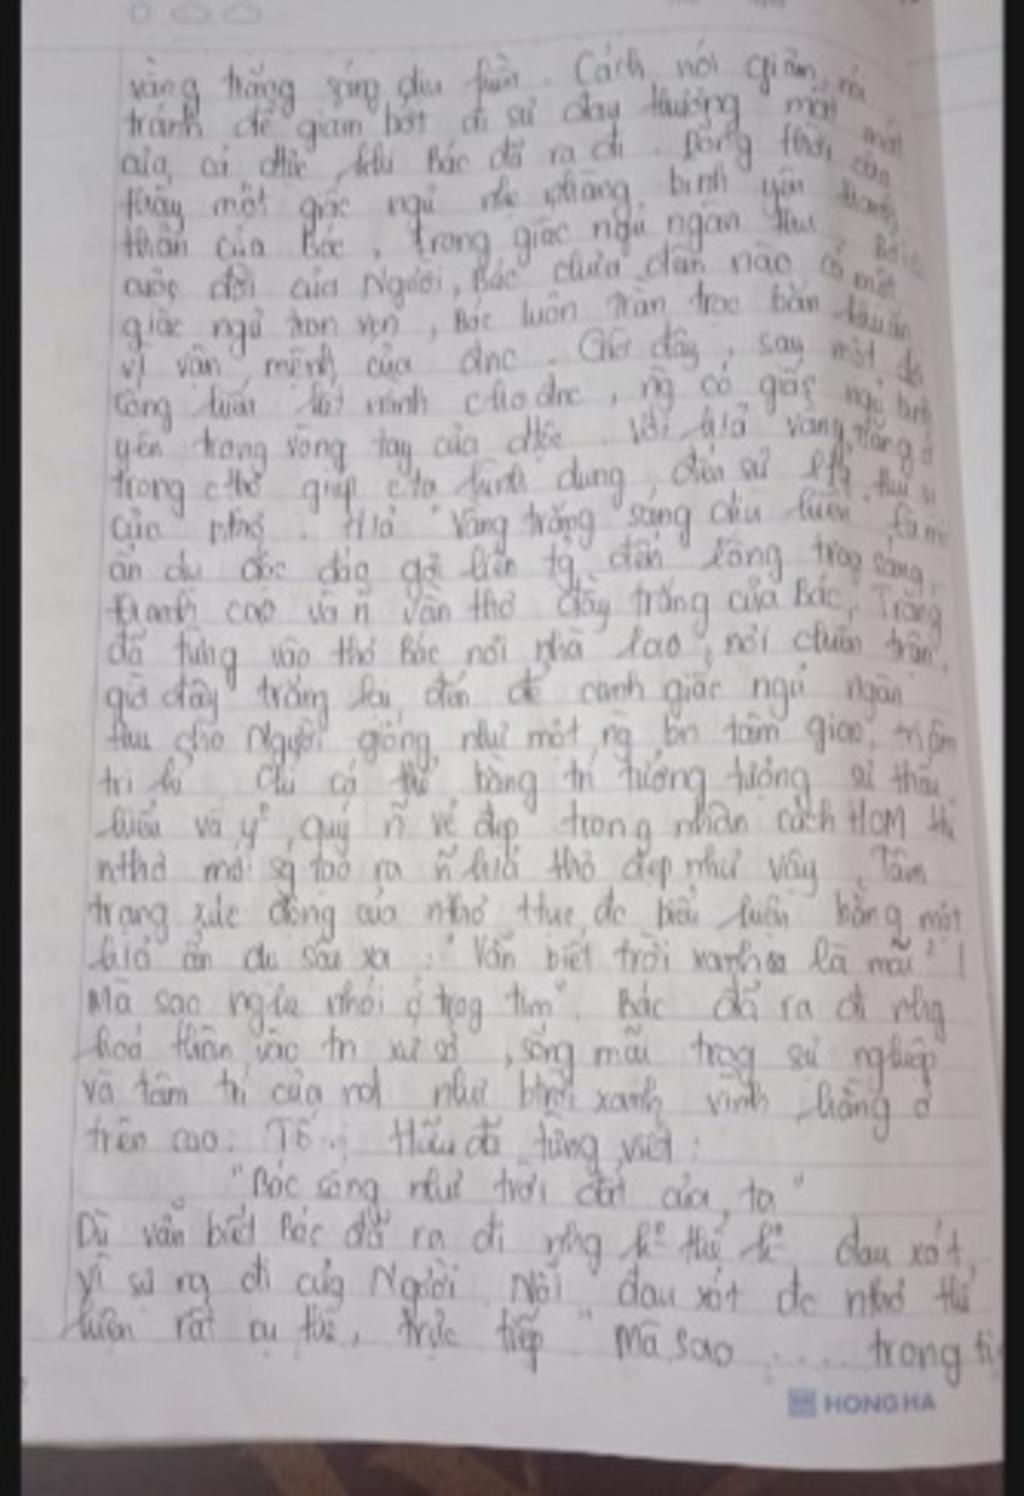 vầng trăng sáng dịu hiền. Cách nói giảm, nói
tránh để giảm bớt đi sự đau thương mất mát
của cả khi Bác đã ra đi. Đồng thời còn
thấy một giấc ngủ nhẹ nhàng, bình yên
thản của Bác. Trong giấc ngủ ngàn thu
cuộc đời của Người, Bác chưa đêm nào có một
giấc ngủ trọn vẹn, Bác luôn trằn trọc băn khoăn
vì vận mệnh của đnc. Giờ đây, sau một đời
cống hiến hết mình cho đnc, ng có giấc ngủ bình
yên trong vòng tay của. Với h/ả vầng trăng
trong thơ giúp cta hình dung đến sự
của. H/ả "vầng trăng sáng dịu hiền" làm
ẩn dụ độc đáo gợi liên tg đến trog sáng,
thanh cao và ~n vần thơ đầy trăng của Bác. Trăng
đã từng vào thơ Bác nơi nhà lao, nơi chiến trận,
giờ đây trăng lại đến để canh giấc ngủ ngàn
thu cho Người giống như một ng bn tâm giao,
tri kỉ. Chỉ có thể bằng trí tưởng tượng, sự thấu
hiểu và y°, quý ~n vẻ đẹp trong nhân cách HCM thì
nthơ mới sg tạo ra ~n h/ả thơ đẹp như vậy. Tâm
trạng xúc động của nthơ đc biểu hiện bằng một
h/ả ẩn dụ sâu xa: "Vẫn biết trời xanh là mãi² /
Mà sao nghe nhói ở trog tim". Bác đã ra đi nhg
hoá thân vào, sống mãi trog sự nghiệp
và tâm trí của như trời xanh vĩnh hằng ở
trên cao. Tố Hữu đã từng viết:
"Bác sống như trời đất của ta"
Dù vẫn biết Bác đã ra đi nhg k° thể k° đau xót
vì sự ra đi của Người. Nỗi đau xót đc nthơ thể
hiện rất cụ thể, trực tiếp "Mà sao .... trong
HONG HA